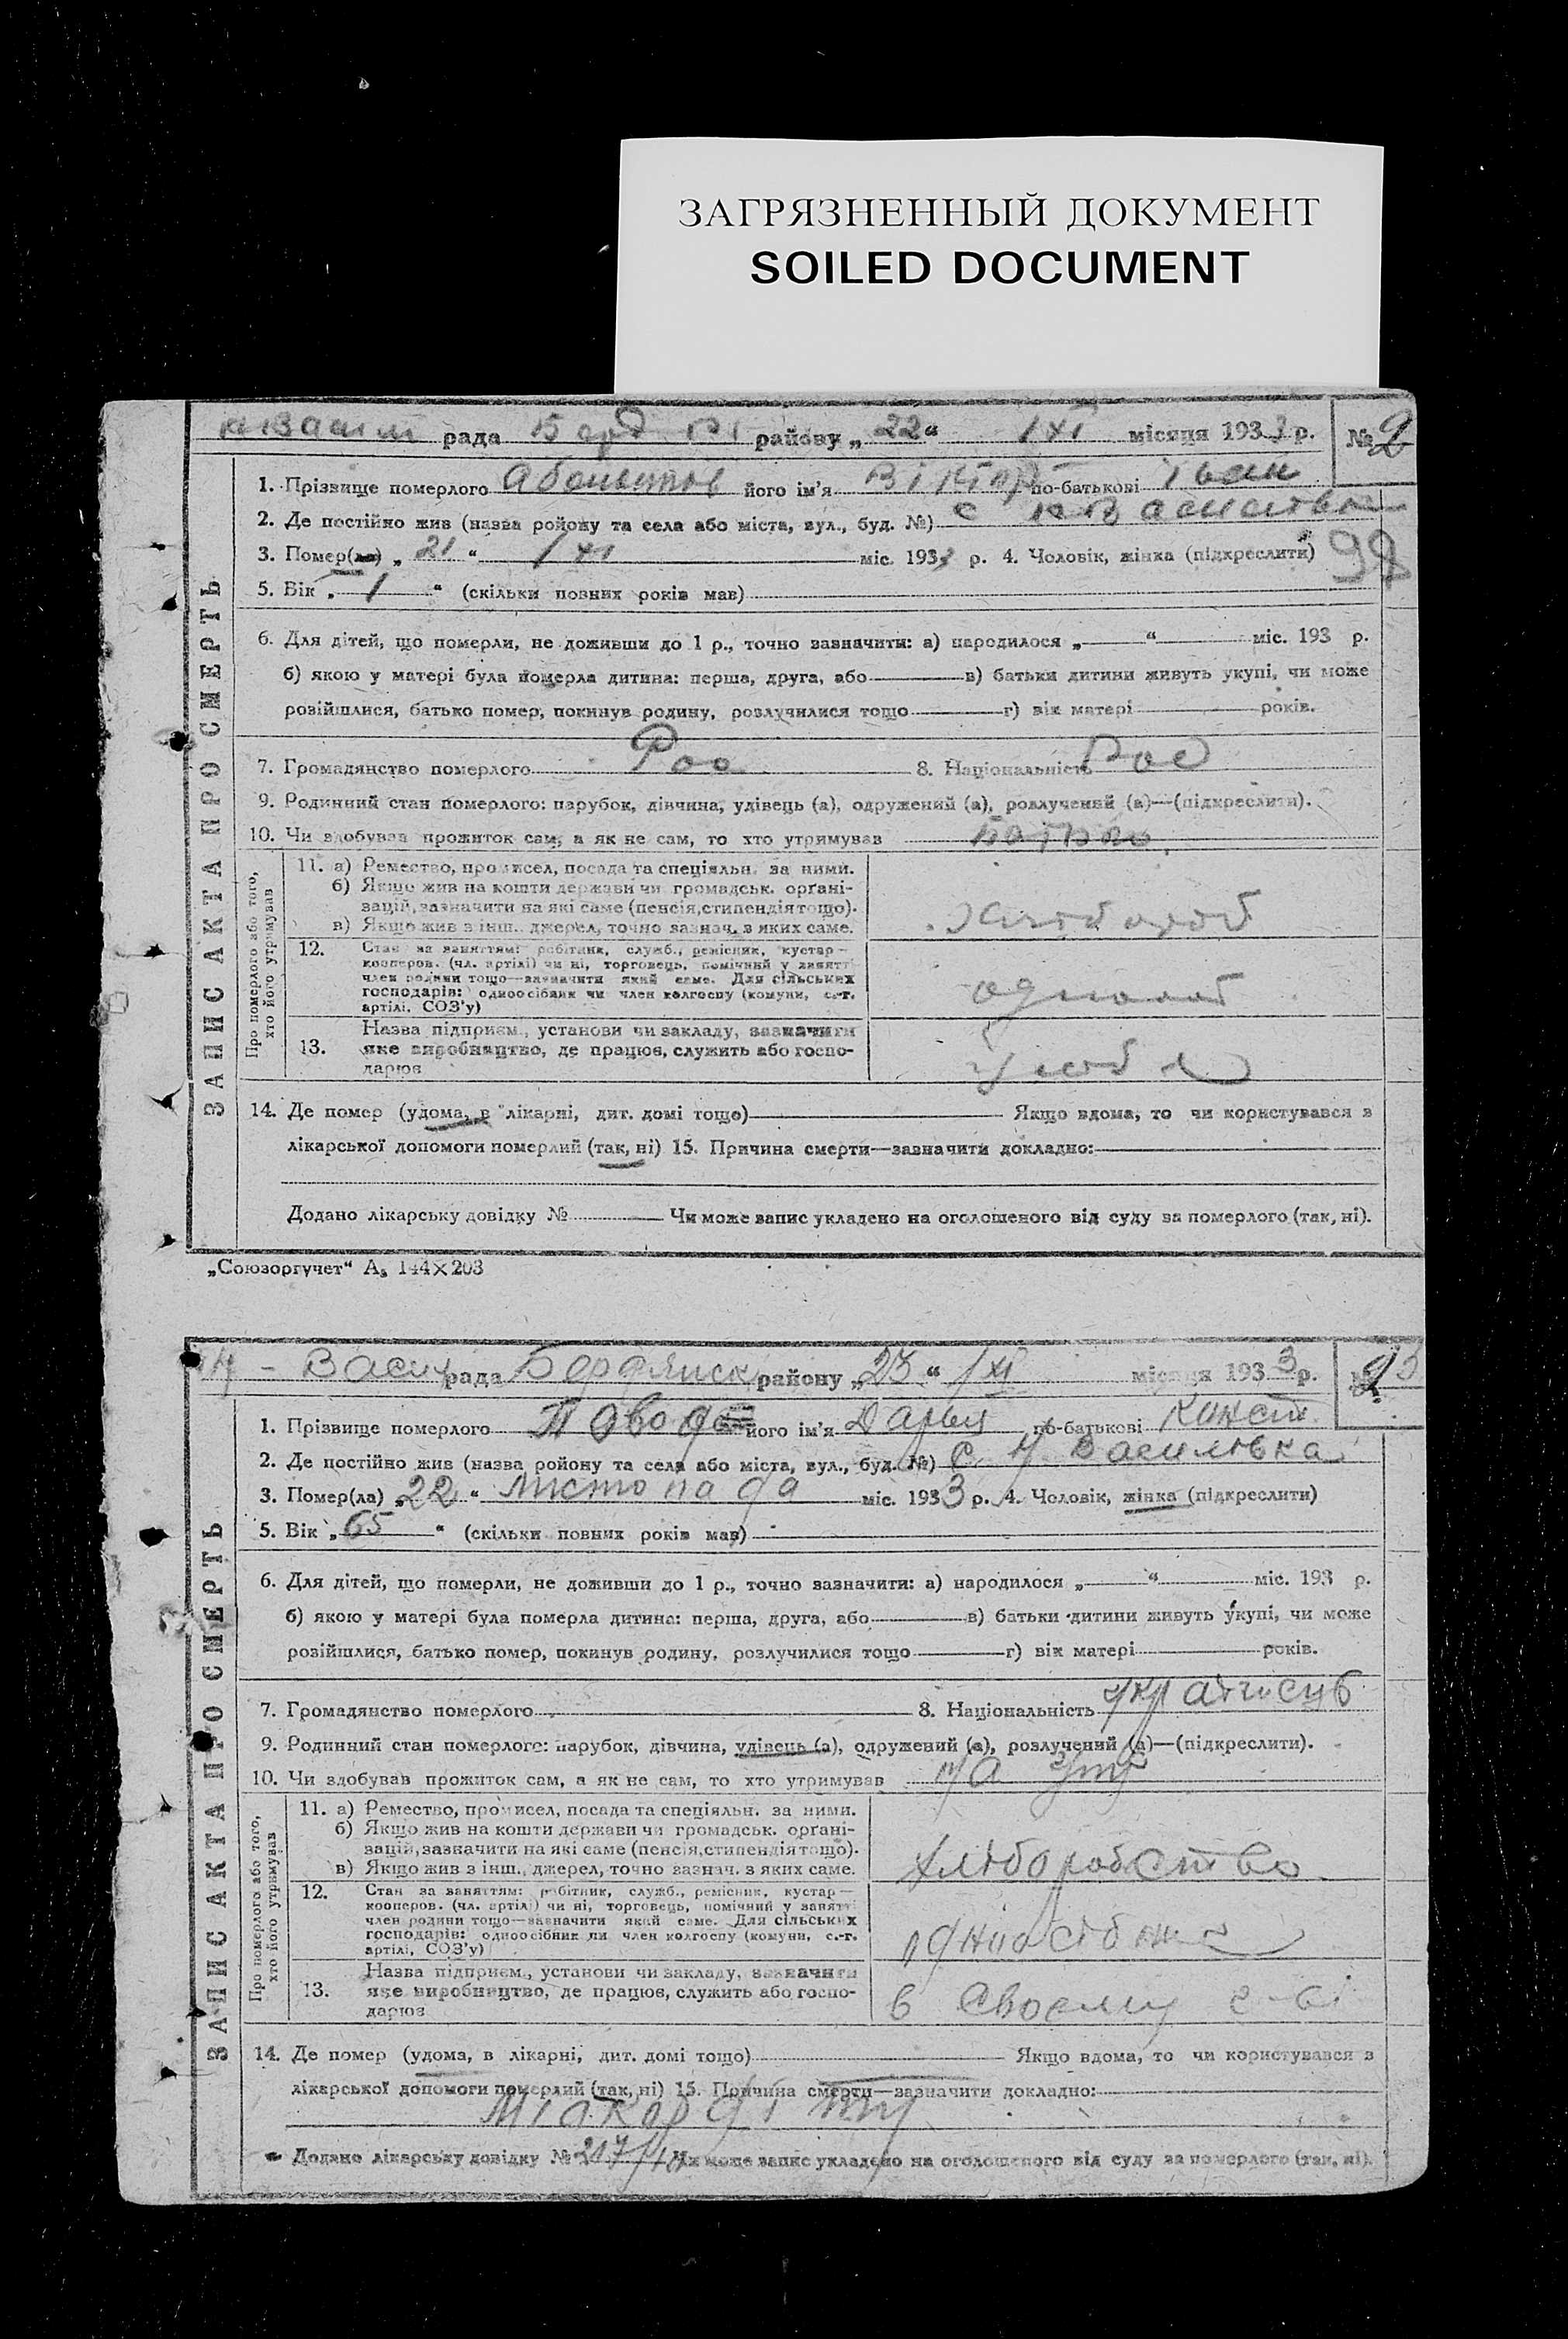 ЗАГРЯЗНЕННЫЙ ДОКУМЕНТ
SOILED DOCUMENT
рада Берд районy „22“ /XI місяця 1933 р. № 2
1. Прізвище померлого його ім'я Віктор по-батькові Іван
2. Де постійно жив (назва ройону та села або міста, вул., буд. №) с
3. Помер(ла) „21“ /XI міс. 1933 р. 4. Чоловік, жінка (підкреслити) 99
5. Вік „1“ (скільки повних років мав)
6. Для дітей, що померли, не доживши до 1 р., точно зазначити: а) народилося „ “ міс. 193 р.
б) якою у матері була померла дитина: перша, друга, або в) батьки дитини живуть укупі, чи може
розійшлися, батько помер, покинув родину, розлучилися тощо г) вік матері років.
7. Громадянство померлого 8. Національність
9. Родинний стан померлого: парубок, дівчина, удівець (а), одружений (а), розлучений (а)—(підкреслити).
10. Чи здобував прожиток сам, а як не сам, то хто утримував
ЗАПИС АКТА ПРО СМЕРТЬ
Про померлого або того, хто його утримував
11. а) Ремество, промисел, посада та спеціяльн. за ними.
б) Якщо жив на кошти держави чи громадськ. органі-
зацій, зазначити на які саме (пенсія, стипендія тощо).
в) Якщо жив з інш. джерел, точно зазнач. з яких саме.
12. Стан за заняттям: робітник, служб., ремісник, кустар—
кооперов. (чл. артілі) чи ні, торговець, помічний у занятті
член родини тощо—зазначити який саме. Для сільських
господарів: одноосібник чи член колгоспу (комуни, с.-г.
артілі, СОЗ'у)
Назва підприєм., установи чи закладу, зазначити
13. яке виробництво, де працює, служить або госпо-
дарює
14. Де помер (удома, в лікарні, дит. домі тощо) Якщо вдома, то чи користувався з
лікарської допомоги померлий (так, ні) 15. Причина смерти—зазначити докладно:
Додано лікарську довідку № Чи може запис укладено на оголошеного від суду за померлого (так, ні).
„Союзоргучет“ А₅ 144×203
Н - Васил рада Бердянск району „23“ /XI місяця 1933 р. № 93
1. Прізвище померлого його ім'я Дарья по-батькові Конст
2. Де постійно жив (назва ройону та села або міста, вул., буд. №) с. Н Василівка
3. Помер(ла) „22“ листопада міс. 1933 р. 4. Чоловік, жінка (підкреслити)
5. Вік „65“ (скільки повних років мав)
6. Для дітей, що померли, не доживши до 1 р., точно зазначити: а) народилося „ “ міс. 193 р.
б) якою у матері була померла дитина: перша, друга, або в) батьки дитини живуть укупі, чи може
розійшлися, батько помер, покинув родину, розлучилися тощо г) вік матері років.
7. Громадянство померлого 8. Національність
9. Родинний стан померлого: парубок, дівчина, удівець (а), одружений (а), розлучений (а)—(підкреслити).
10. Чи здобував прожиток сам, а як не сам, то хто утримував на
ЗАПИС АКТА ПРО СМЕРТЬ
Про померлого або того, хто його утримував
11. а) Ремество, промисел, посада та спеціяльн. за ними.
б) Якщо жив на кошти держави чи громадськ. органі-
зацій, зазначити на які саме (пенсія, стипендія тощо).
в) Якщо жив з інш. джерел, точно зазнач. з яких саме.
хліборобство
12. Стан за заняттям: робітник, служб., ремісник, кустар—
кооперов. (чл. артілі) чи ні, торговець, помічний у занятті
член родини тощо—зазначити який саме. Для сільських
господарів: одноосібник чи член колгоспу (комуни, с.-г.
артілі, СОЗ'у)
Назва підприєм., установи чи закладу, зазначити
13. яке виробництво, де працює, служить або госпо-
дарює
в своему г-ві
14. Де помер (удома, в лікарні, дит. домі тощо) Якщо вдома, то чи користувався з
лікарської допомоги померлий (так, ні) 15. Причина смерти—зазначити докладно:
Міокардіту
Додано лікарську довідку № Чи може запис укладено на оголошеного від суду за померлого (так, ні).